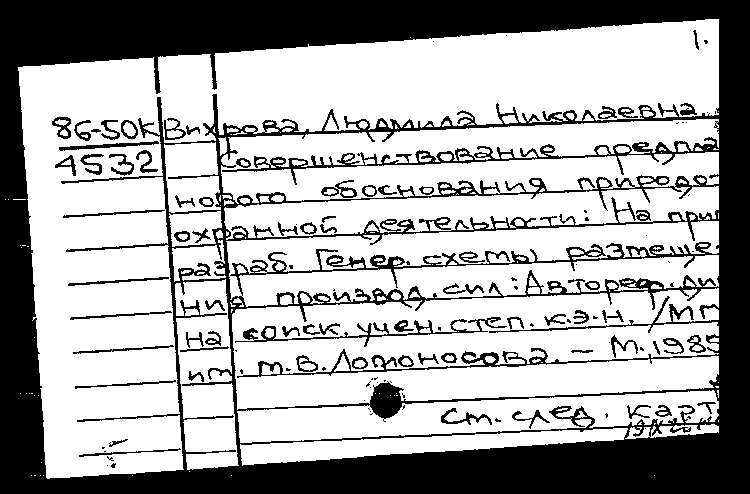 1.
86-50К Вихрова, Людмила Николаевна.
4532 Совершенствование предпла
нового обоснования природо-
охранной деятельности: На при
разраб. Генер. схемы размеще-
ния производ. сил: Автореф. ди
на соиск. учен. степ. к.э.н. /МГ
им. М.В. Ломоносова. – М., 1985
См. след. карт